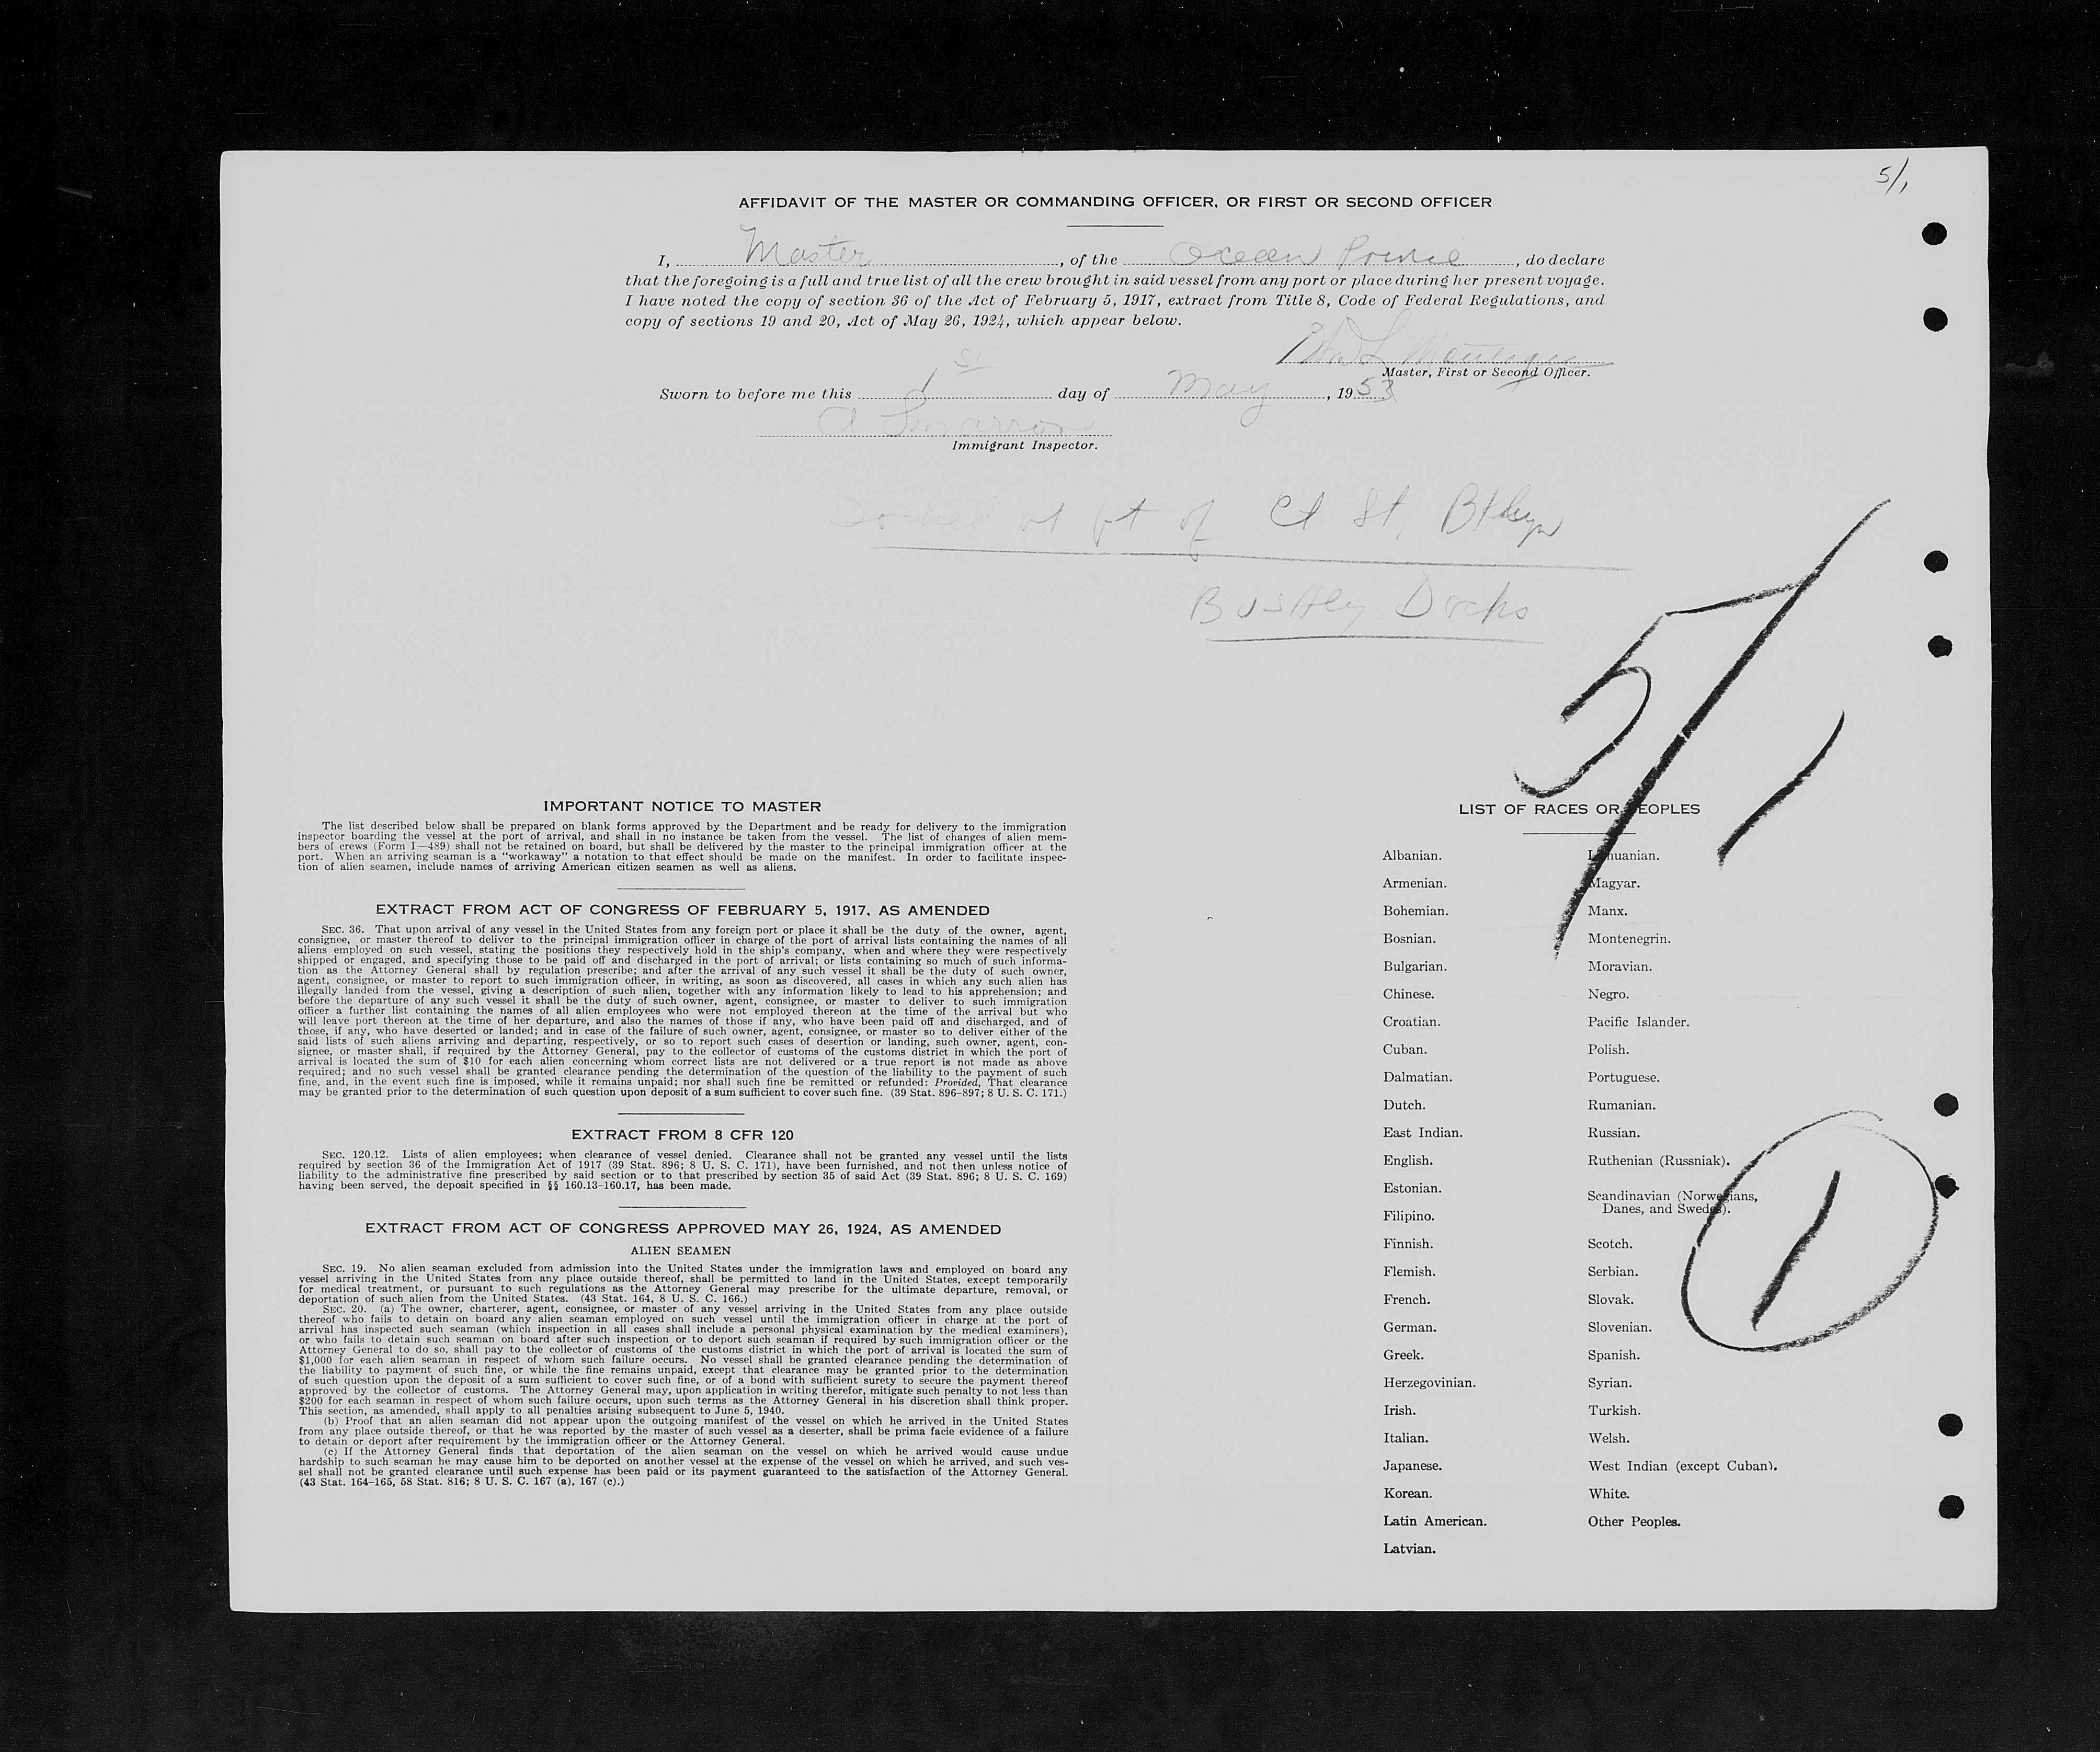 5/1
AFFIDAVIT OF THE MASTER OR COMMANDING OFFICER, OR FIRST OR SECOND OFFICER
I, Master, of the Ocean Prince, do declare
that the foregoing is a full and true list of all the crew brought in said vessel from any port or place during her present voyage.
I have noted the copy of section 36 of the Act of February 5, 1917, extract from Title 8, Code of Federal Regulations, and
copy of sections 19 and 20, Act of May 26, 1924, which appear below.
Master, First or Second Officer.
Sworn to before me this 1st day of May, 1953
Immigrant Inspector.
Docked at ft of Ct St, Bklyn
Docks
5/1
IMPORTANT NOTICE TO MASTER
The list described below shall be prepared on blank forms approved by the Department and be ready for delivery to the immigration
inspector boarding the vessel at the port of arrival, and shall in no instance be taken from the vessel. The list of changes of alien mem-
bers of crews (Form I—489) shall not be retained on board, but shall be delivered by the master to the principal immigration officer at the
port. When an arriving seaman is a "workaway" a notation to that effect should be made on the manifest. In order to facilitate inspec-
tion of alien seamen, include names of arriving American citizen seamen as well as aliens.
EXTRACT FROM ACT OF CONGRESS OF FEBRUARY 5, 1917, AS AMENDED
SEC. 36. That upon arrival of any vessel in the United States from any foreign port or place it shall be the duty of the owner, agent,
consignee, or master thereof to deliver to the principal immigration officer in charge of the port of arrival lists containing the names of all
aliens employed on such vessel, stating the positions they respectively hold in the ship's company, when and where they were respectively
shipped or engaged, and specifying those to be paid off and discharged in the port of arrival; or lists containing so much of such informa-
tion as the Attorney General shall by regulation prescribe; and after the arrival of any such vessel it shall be the duty of such owner,
agent, consignee, or master to report to such immigration officer, in writing, as soon as discovered, all cases in which any such alien has
illegally landed from the vessel, giving a description of such alien, together with any information likely to lead to his apprehension; and
before the departure of any such vessel it shall be the duty of such owner, agent, consignee, or master to deliver to such immigration
officer a further list containing the names of all alien employees who were not employed thereon at the time of the arrival but who
will leave port thereon at the time of her departure, and also the names of those if any, who have been paid off and discharged, and of
those, if any, who have deserted or landed; and in case of the failure of such owner, agent, consignee, or master so to deliver either of the
said lists of such aliens arriving and departing, respectively, or so to report such cases of desertion or landing, such owner, agent, con-
signee, or master shall, if required by the Attorney General, pay to the collector of customs of the customs district in which the port of
arrival is located the sum of $10 for each alien concerning whom correct lists are not delivered or a true report is not made as above
required; and no such vessel shall be granted clearance pending the determination of the question of the liability to the payment of such
fine, and, in the event such fine is imposed, while it remains unpaid; nor shall such fine be remitted or refunded: Provided, That clearance
may be granted prior to the determination of such question upon deposit of a sum sufficient to cover such fine. (39 Stat. 896-897; 8 U. S. C. 171.)
EXTRACT FROM 8 CFR 120
SEC. 120.12. Lists of alien employees; when clearance of vessel denied. Clearance shall not be granted any vessel until the lists
required by section 36 of the Immigration Act of 1917 (39 Stat. 896; 8 U. S. C. 171), have been furnished, and not then unless notice of
liability to the administrative fine prescribed by said section or to that prescribed by section 35 of said Act (39 Stat. 896; 8 U. S. C. 169)
having been served, the deposit specified in §§ 160.13-160.17, has been made.
EXTRACT FROM ACT OF CONGRESS APPROVED MAY 26, 1924, AS AMENDED
ALIEN SEAMEN
SEC. 19. No alien seaman excluded from admission into the United States under the immigration laws and employed on board any
vessel arriving in the United States from any place outside thereof, shall be permitted to land in the United States, except temporarily
for medical treatment, or pursuant to such regulations as the Attorney General may prescribe for the ultimate departure, removal, or
deportation of such alien from the United States. (43 Stat. 164, 8 U. S. C. 166.)
SEC. 20. (a) The owner, charterer, agent, consignee, or master of any vessel arriving in the United States from any place outside
thereof who fails to detain on board any alien seaman employed on such vessel until the immigration officer in charge at the port of
arrival has inspected such seaman (which inspection in all cases shall include a personal physical examination by the medical examiners),
or who fails to detain such seaman on board after such inspection or to deport such seaman if required by such immigration officer or the
Attorney General to do so, shall pay to the collector of customs of the customs district in which the port of arrival is located the sum of
$1,000 for each alien seaman in respect of whom such failure occurs. No vessel shall be granted clearance pending the determination of
the liability to payment of such fine, or while the fine remains unpaid, except that clearance may be granted prior to the determination
of such question upon the deposit of a sum sufficient to cover such fine, or of a bond with sufficient surety to secure the payment thereof
approved by the collector of customs. The Attorney General may, upon application in writing therefor, mitigate such penalty to not less than
$200 for each seaman in respect of whom such failure occurs, upon such terms as the Attorney General in his discretion shall think proper.
This section, as amended, shall apply to all penalties arising subsequent to June 5, 1940.
(b) Proof that an alien seaman did not appear upon the outgoing manifest of the vessel on which he arrived in the United States
from any place outside thereof, or that he was reported by the master of such vessel as a deserter, shall be prima facie evidence of a failure
to detain or deport after requirement by the immigration officer or the Attorney General.
(c) If the Attorney General finds that deportation of the alien seaman on the vessel on which he arrived would cause undue
hardship to such seaman he may cause him to be deported on another vessel at the expense of the vessel on which he arrived, and such ves-
sel shall not be granted clearance until such expense has been paid or its payment guaranteed to the satisfaction of the Attorney General.
(43 Stat. 164-165, 58 Stat. 816; 8 U. S. C. 167 (a), 167 (c).)
LIST OF RACES OR PEOPLES
Albanian.
Armenian.
Bohemian.
Bosnian.
Bulgarian.
Chinese.
Croatian.
Cuban.
Dalmatian.
Dutch.
East Indian.
English.
Estonian.
Filipino.
Finnish.
Flemish.
French.
German.
Greek.
Herzegovinian.
Irish.
Italian.
Japanese.
Korean.
Latin American.
Latvian.
Lithuanian.
Magyar.
Manx.
Montenegrin.
Moravian.
Negro.
Pacific Islander.
Polish.
Portuguese.
Rumanian.
Russian.
Ruthenian (Russniak).
Scandinavian (Norwegians,
Danes, and Swedes).
Scotch.
Serbian.
Slovak.
Slovenian.
Spanish.
Syrian.
Turkish.
Welsh.
West Indian (except Cuban).
White.
Other Peoples.
1